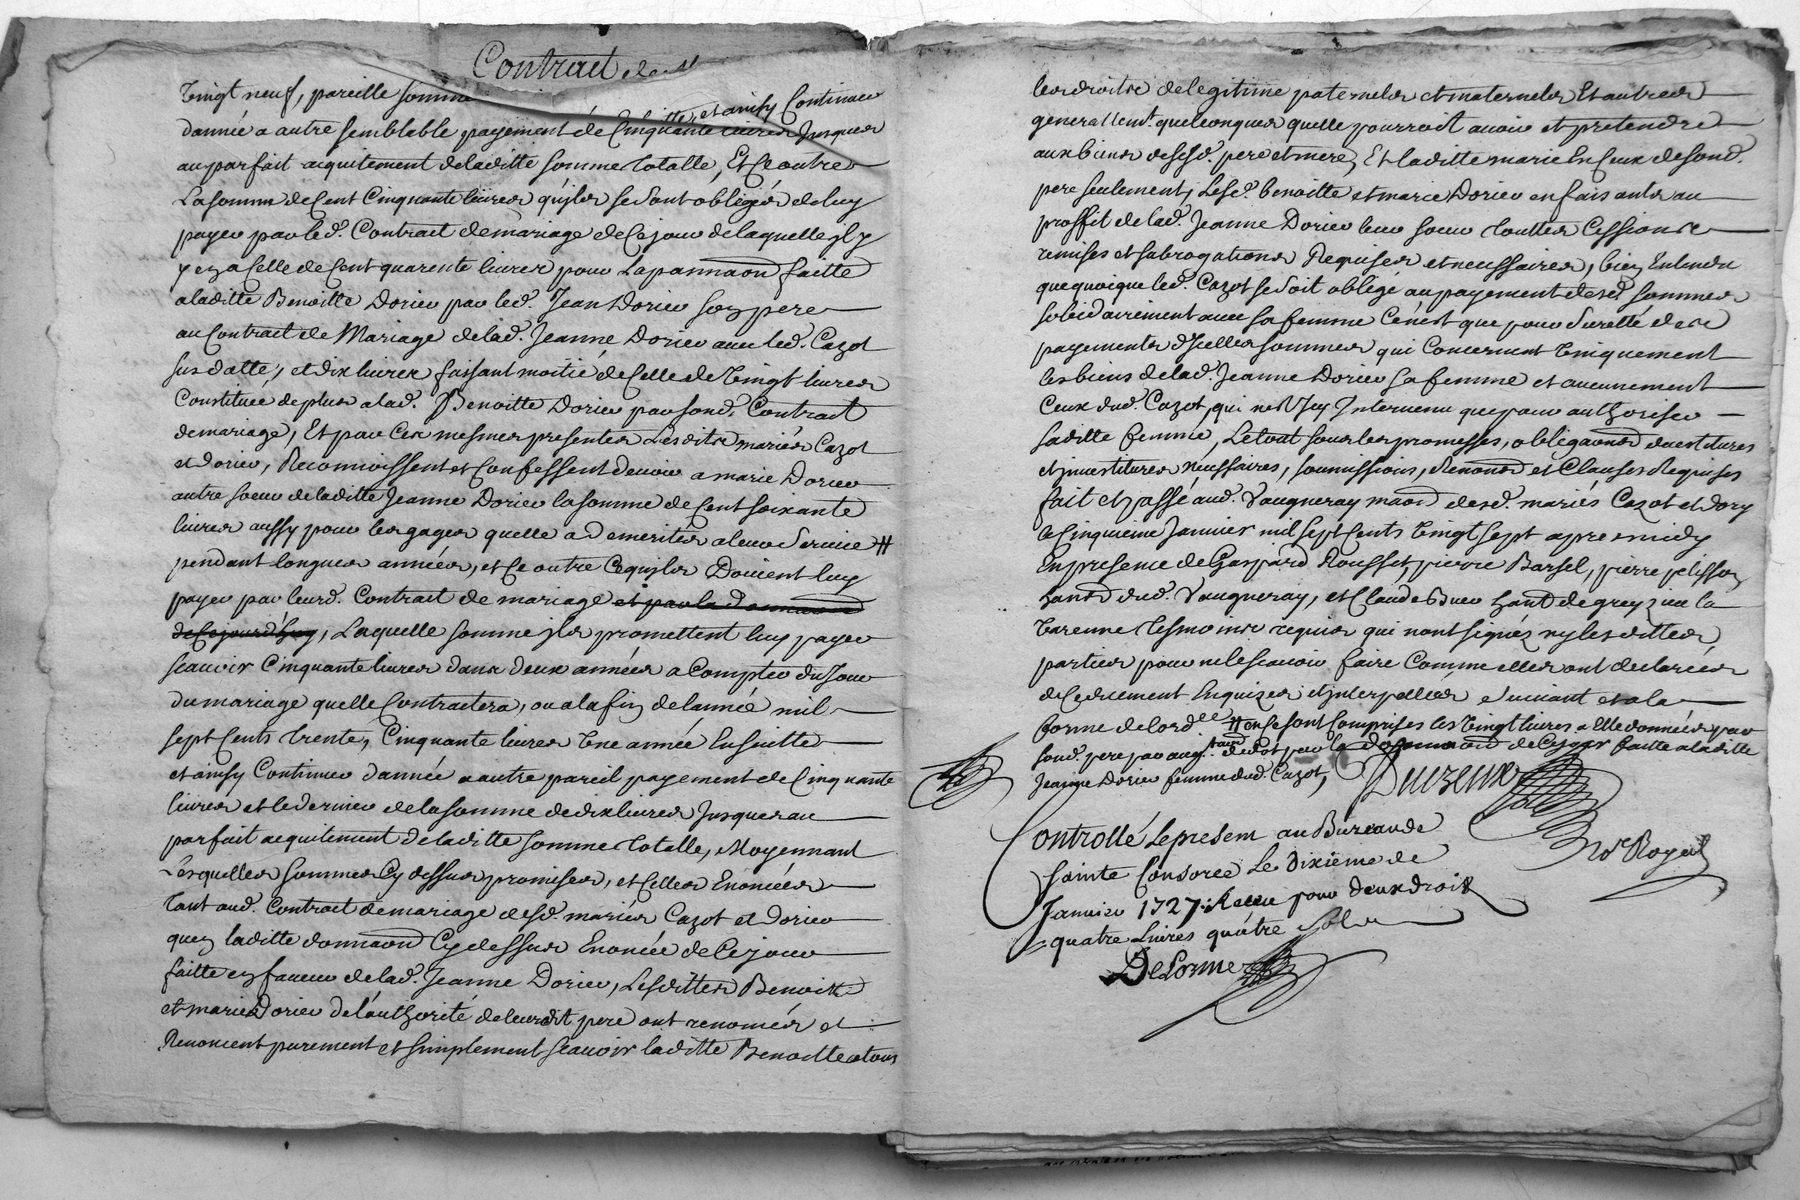 Contract de
Vingt neuf, pareille somme
ensuitte, et ainsy Continuer
dannée a autre semblable payement de Cinquante livres Jusques
au parfait aquitement deladitte somme totalle, Et Ce outre
La somme de Cent Cinquante livres quils se sont obligés de luy
payer par led. Contract de mariage de Ce jour de laquelle il y
y en a Celle de Cent quarente livres pour La donnaon faitte
a laditte Benoitte Dorieu par led. Jean Dorieu son pere
au Contract de Mariage de lad. Jeanne Dorieu avec led. Cazot
sus datté, et dix livres faisant moitié de Celle de Vingt livres
Constituée de plus a lad. Benoitte Dorieu par sond. Contract
de mariage, Et par Ces mesmes presentes Lesdits mariés Cazot
et Dorieu, Reconnoissent et Confessent devoir a marie Dorieu
autre soeur de laditte Jeanne Dorieu la somme de Cent soixante
livres aussy pour les gages quelle a demerités a leur Service #
pendant longues années, et Ce outre Ce quils Doivent luy
payer par leurd. Contract de mariage et par la donnaon
de Ce jourdhuy, Laquelle somme ils promettent luy payer
scavoir Cinquante livres dans deux années a Compter du Jour
du mariage quelle Contractera, ou a la fin de lannée mil
sept Cents trente, Cinquante livres Une année Ensuitte
et ainsy Continuer dannée a autre pareil payement de Cinquante
livres et le dernier de la somme de dix livres Jusques au
parfait aequitement de laditte somme totalle, Moyennant
Lesquelles sommes Cy dessus promises, et Celles Enoncées
tant aud. Contract de mariage desd. mariés Cazot et Dorieu
quen laditte donnaon Cy dessus Enoncée de Ce jour
faitte en faveur de lad. Jeanne Dorieu, Lesdittes Benoitte
et marie Dorieu de l'authorité de leurdit pere ont renoncées et
Renoncent purement et simplement scavoir laditte Benoitte a tous
les droits de legitime paternels et maternels Et autres
generallemt. quelconques quelle pourroit avoir et pretendre
aux biens desesd. pere et mere, Et laditte marie En Ceux de sond.
pere seulement, Lesd. benoitte et marie Dorieu en faisants au
proffit de lad. Jeanne Dorieu leur soeur touttes Cessions
remises et subrogations Requises et necessaires, bien Entendu
que quoique led. Cazot se soit obligé au payement desd. sommes
solidairement avec sa femme Ce nest que pour Surette des
payements d'Icelles sommes qui Concernent Uniquement
les biens de lad. Jeanne Dorieu sa femme et aucunement
Ceux dud. Cazot, qui nest Icy Intervenu que pour authoriser
saditte femme, Le tout sous les promesses, obligaons devestitures
et investitures necessaires, soumissions, Renonons et Clauses Requises
fait et passé aud. Vaugneray maison desd. mariés Cazot et Dory
le Cinquieme Janvier mil sept Cents Vingt sept apres midy
En presence de Gaspard Rousset, pierre Barsel, pierre pelisson
hants dud. Vaugneray, et Claude Buer hant de grezieu la
Varenne tesmoins requis qui nont signés ny les dittes
parties pour ne le scavoir faire Comme elles ont declarées
de Ce duement Enquizes et Interpellées Suivant et a la
forme de lordce # en Ce sont Comprises les Vingt livres a Elle données par
sond. pere par augt. de dot par la donnaon de Ce jour faitte a laditte
Jeanne Dorieu femme dud. Cazot,
Duizeux
Nore Royal
Controllé le present au Bureau de
Sainte Consorce Le Dixième de
Janvier 1727. Receu pour deux droits
quatre Livres quatre sols
Delorme